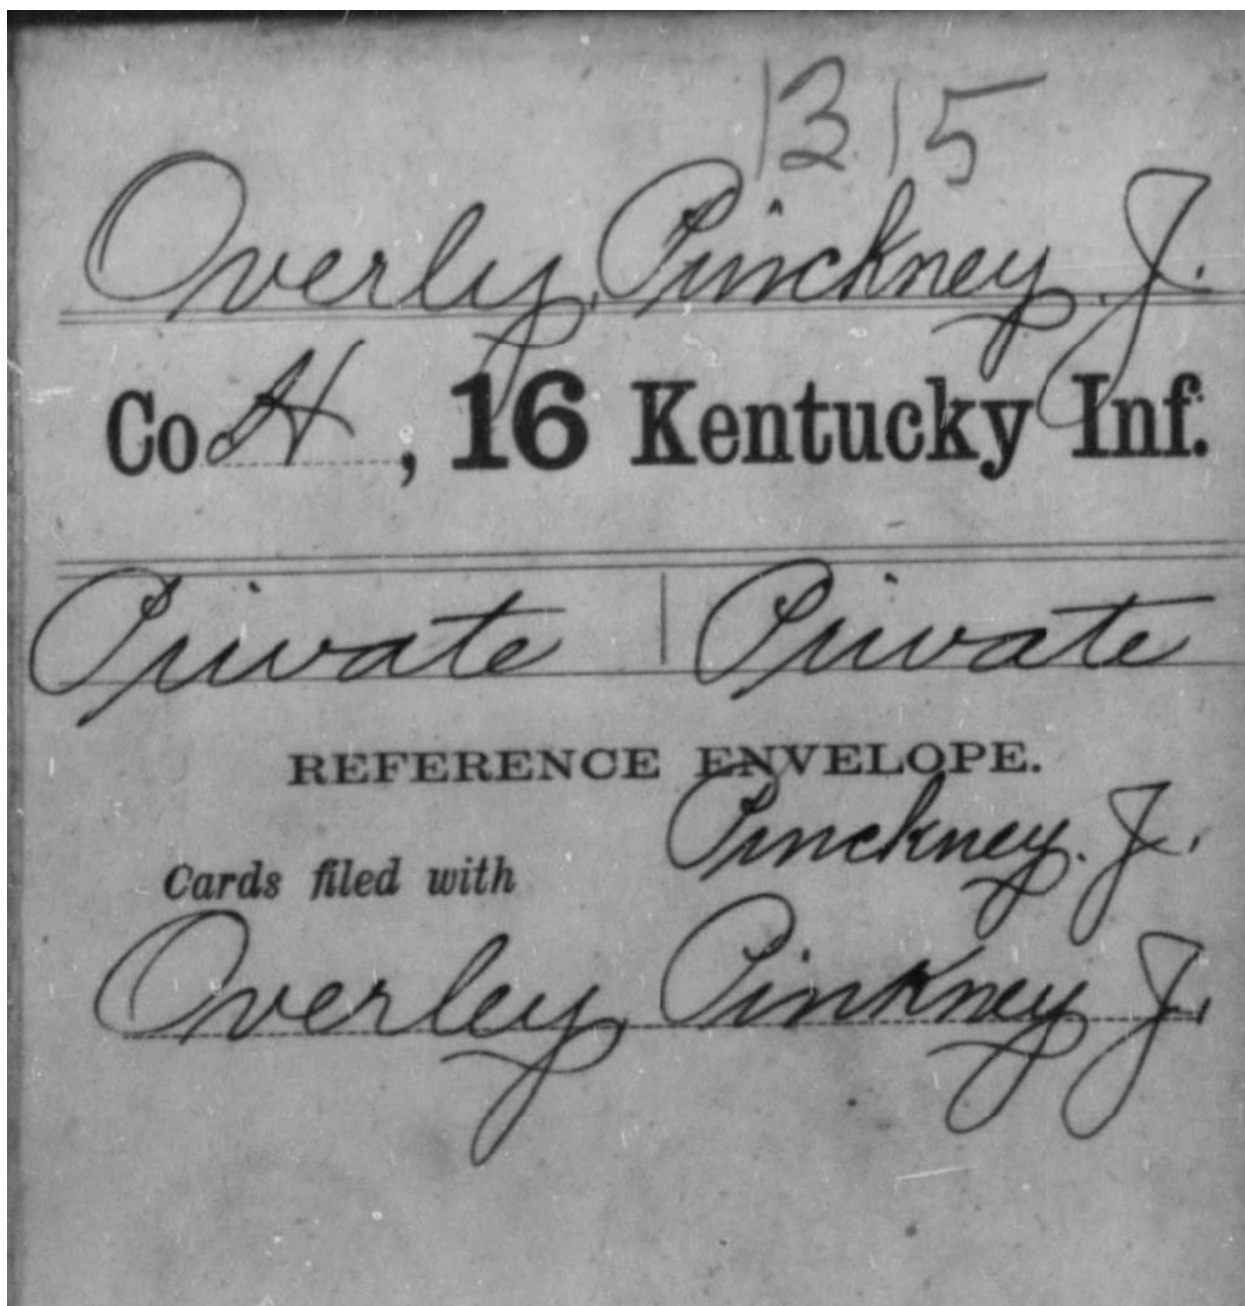 1315
Overly, Pinckney, J.
Co H, 16 Kentucky Inf.
Private | Private
REFERENCE ENVELOPE.
Pinckney. J.
Cards filed with
Overley, Pinkney J.